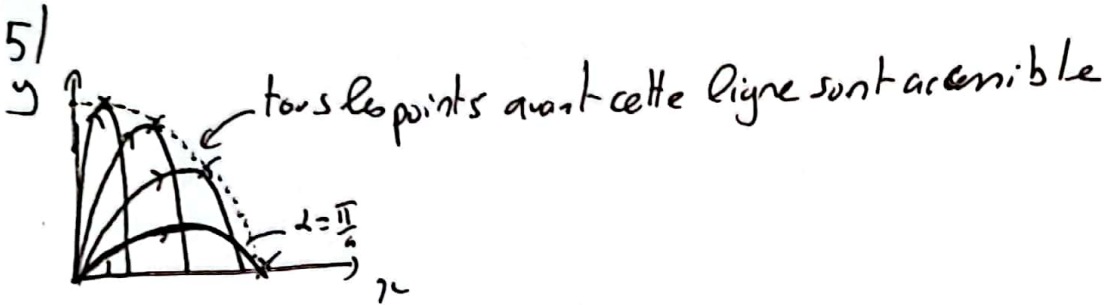 5/
y
tous les points avant cette ligne sont accessible
α = π/4
x